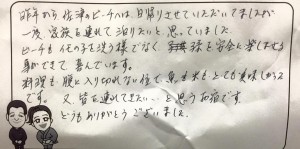 昨年から佐津のビーチハは、日帰りさせていただいてましたが
一度家族を連れて泊りたいと思っていました。
ビーチも化の子を泣き様でなく 孫を安全に楽しませる
事ができて喜んでいます。
料理も腹に入り切れない位で、魚も米もとても美味しゅう
です。又皆を連れてきたい…と思うお宿です。
どうもありがとうございました。